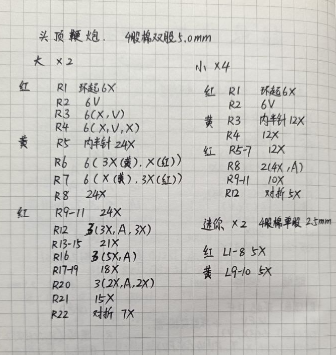 头顶鞭炮. 4股棉双股5.0mm
大 ×2
红 R1 环起6X
R2 6V
R3 6(X,V)
R4 6(X,V,X)
黄 R5 内半针 24X
R6 6(3X(黄),X(红))
R7 6(X(黄),3X(红))
R8 24X
红 R9-11 24X
R12 3(3X,A,3X)
R13-15 21X
R16 3(5X,A)
R17-19 18X
R20 3(2X,A,2X)
R21 15X
R22 对折 7X
小 ×4
红 R1 环起6X
R2 6V
黄 R3 内半针 12X
R4 12X
红 R5-7 12X
R8 2(4X,A)
R9-11 10X
R12 对折 5X
迷你 ×2 4股棉单股 2.5mm
红 L1-8 5X
黄 L9-10 5X